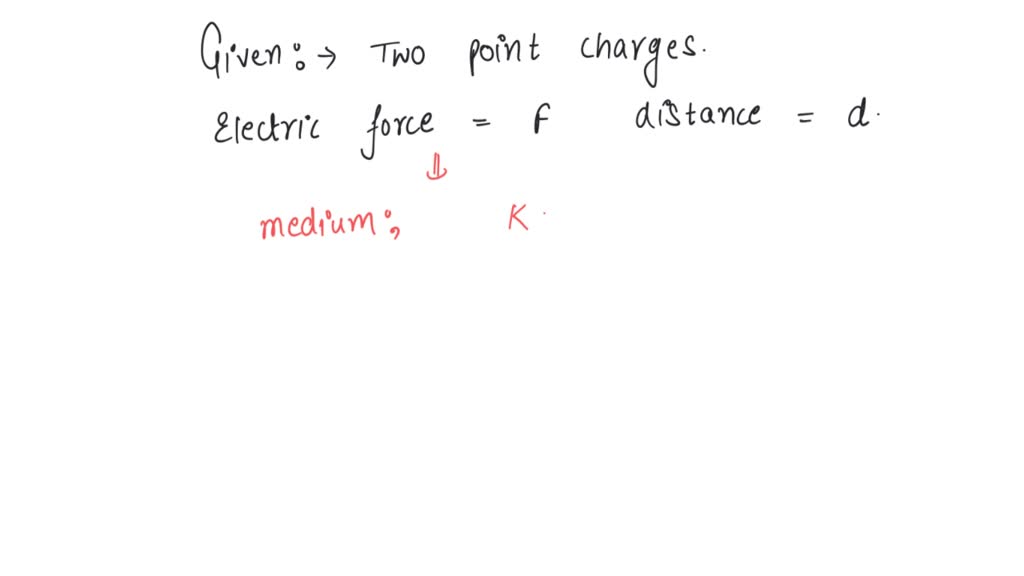 Given:→ Two point charges.
Electric force = F distance = d.
⇓
medium; K.